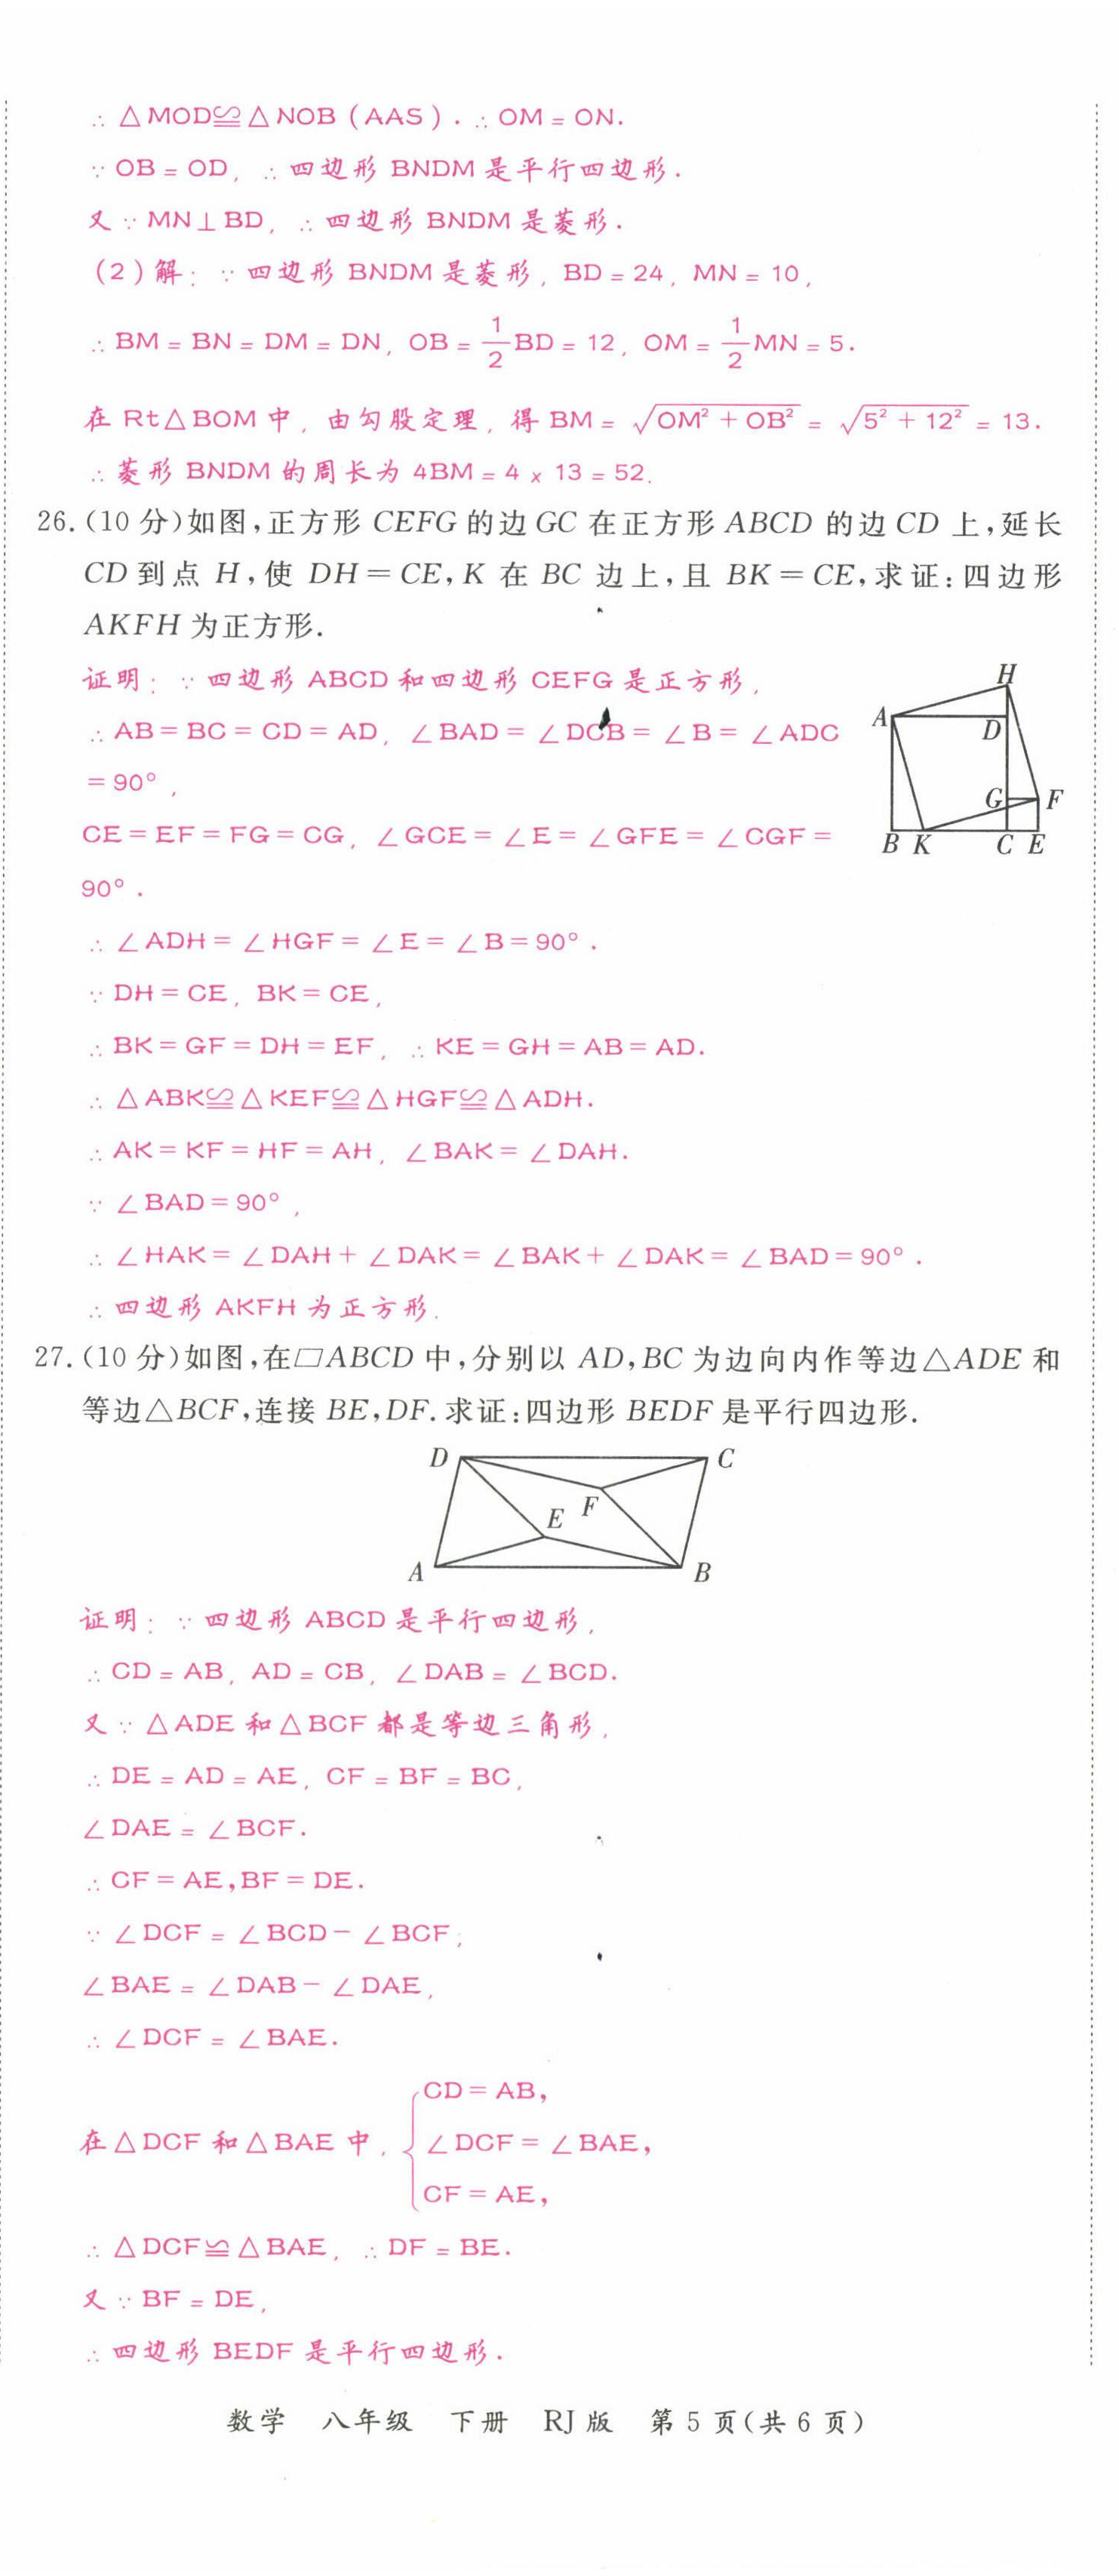 ∴ △MOD≌△NOB(AAS). ∴ OM=ON.
∵ OB=OD, ∴ 四边形 BNDM 是平行四边形.
又∵ MN⊥BD, ∴ 四边形 BNDM 是菱形.
(2)解: ∵ 四边形 BNDM 是菱形, BD=24, MN=10,
∴ BM=BN=DM=DN, OB=\frac{1}{2}BD=12, OM=\frac{1}{2}MN=5.
在 Rt△BOM 中, 由勾股定理, 得 BM=√(OM²+OB²)=√(5²+12²)=13.
∴ 菱形 BNDM 的周长为 4BM=4×13=52.
26.(10 分)如图,正方形 CEFG 的边 GC 在正方形 ABCD 的边 CD 上,延长
CD 到点 H,使 DH=CE,K 在 BC 边上,且 BK=CE,求证:四边形
AKFH 为正方形.
证明: ∵ 四边形 ABCD 和四边形 CEFG 是正方形,
∴ AB=BC=CD=AD, ∠BAD=∠DCB=∠B=∠ADC
=90°,
CE=EF=FG=CG, ∠GCE=∠E=∠GFE=∠CGF=
90°.
H
A
D
G
F
B K C E
∴ ∠ADH=∠HGF=∠E=∠B=90°.
∵ DH=CE, BK=CE,
∴ BK=GF=DH=EF, ∴ KE=GH=AB=AD.
∴ △ABK≌△KEF≌△HGF≌△ADH.
∴ AK=KF=HF=AH, ∠BAK=∠DAH.
∵ ∠BAD=90°,
∴ ∠HAK=∠DAH+∠DAK=∠BAK+∠DAK=∠BAD=90°.
∴ 四边形 AKFH 为正方形.
27.(10 分)如图,在▱ABCD 中,分别以 AD,BC 为边向内作等边△ADE 和
等边△BCF,连接 BE,DF.求证:四边形 BEDF 是平行四边形.
D C
E F
A B
证明: ∵ 四边形 ABCD 是平行四边形,
∴ CD=AB, AD=CB, ∠DAB=∠BCD.
又∵ △ADE 和△BCF 都是等边三角形,
∴ DE=AD=AE, CF=BF=BC,
∠DAE=∠BCF.
∴ CF=AE,BF=DE.
∵ ∠DCF=∠BCD-∠BCF,
∠BAE=∠DAB-∠DAE,
∴ ∠DCF=∠BAE.
CD=AB,
在△DCF 和△BAE 中, { ∠DCF=∠BAE,
CF=AE,
∴ △DCF≌△BAE, ∴ DF=BE.
又∵ BF=DE,
∴ 四边形 BEDF 是平行四边形.
数学 八年级 下册 RJ版 第 5 页(共 6 页)